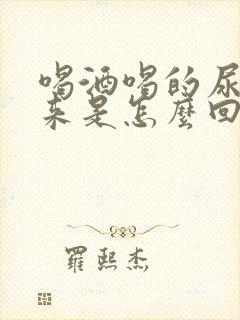 喝酒喝的尿
来是怎麼回
羅熙杰